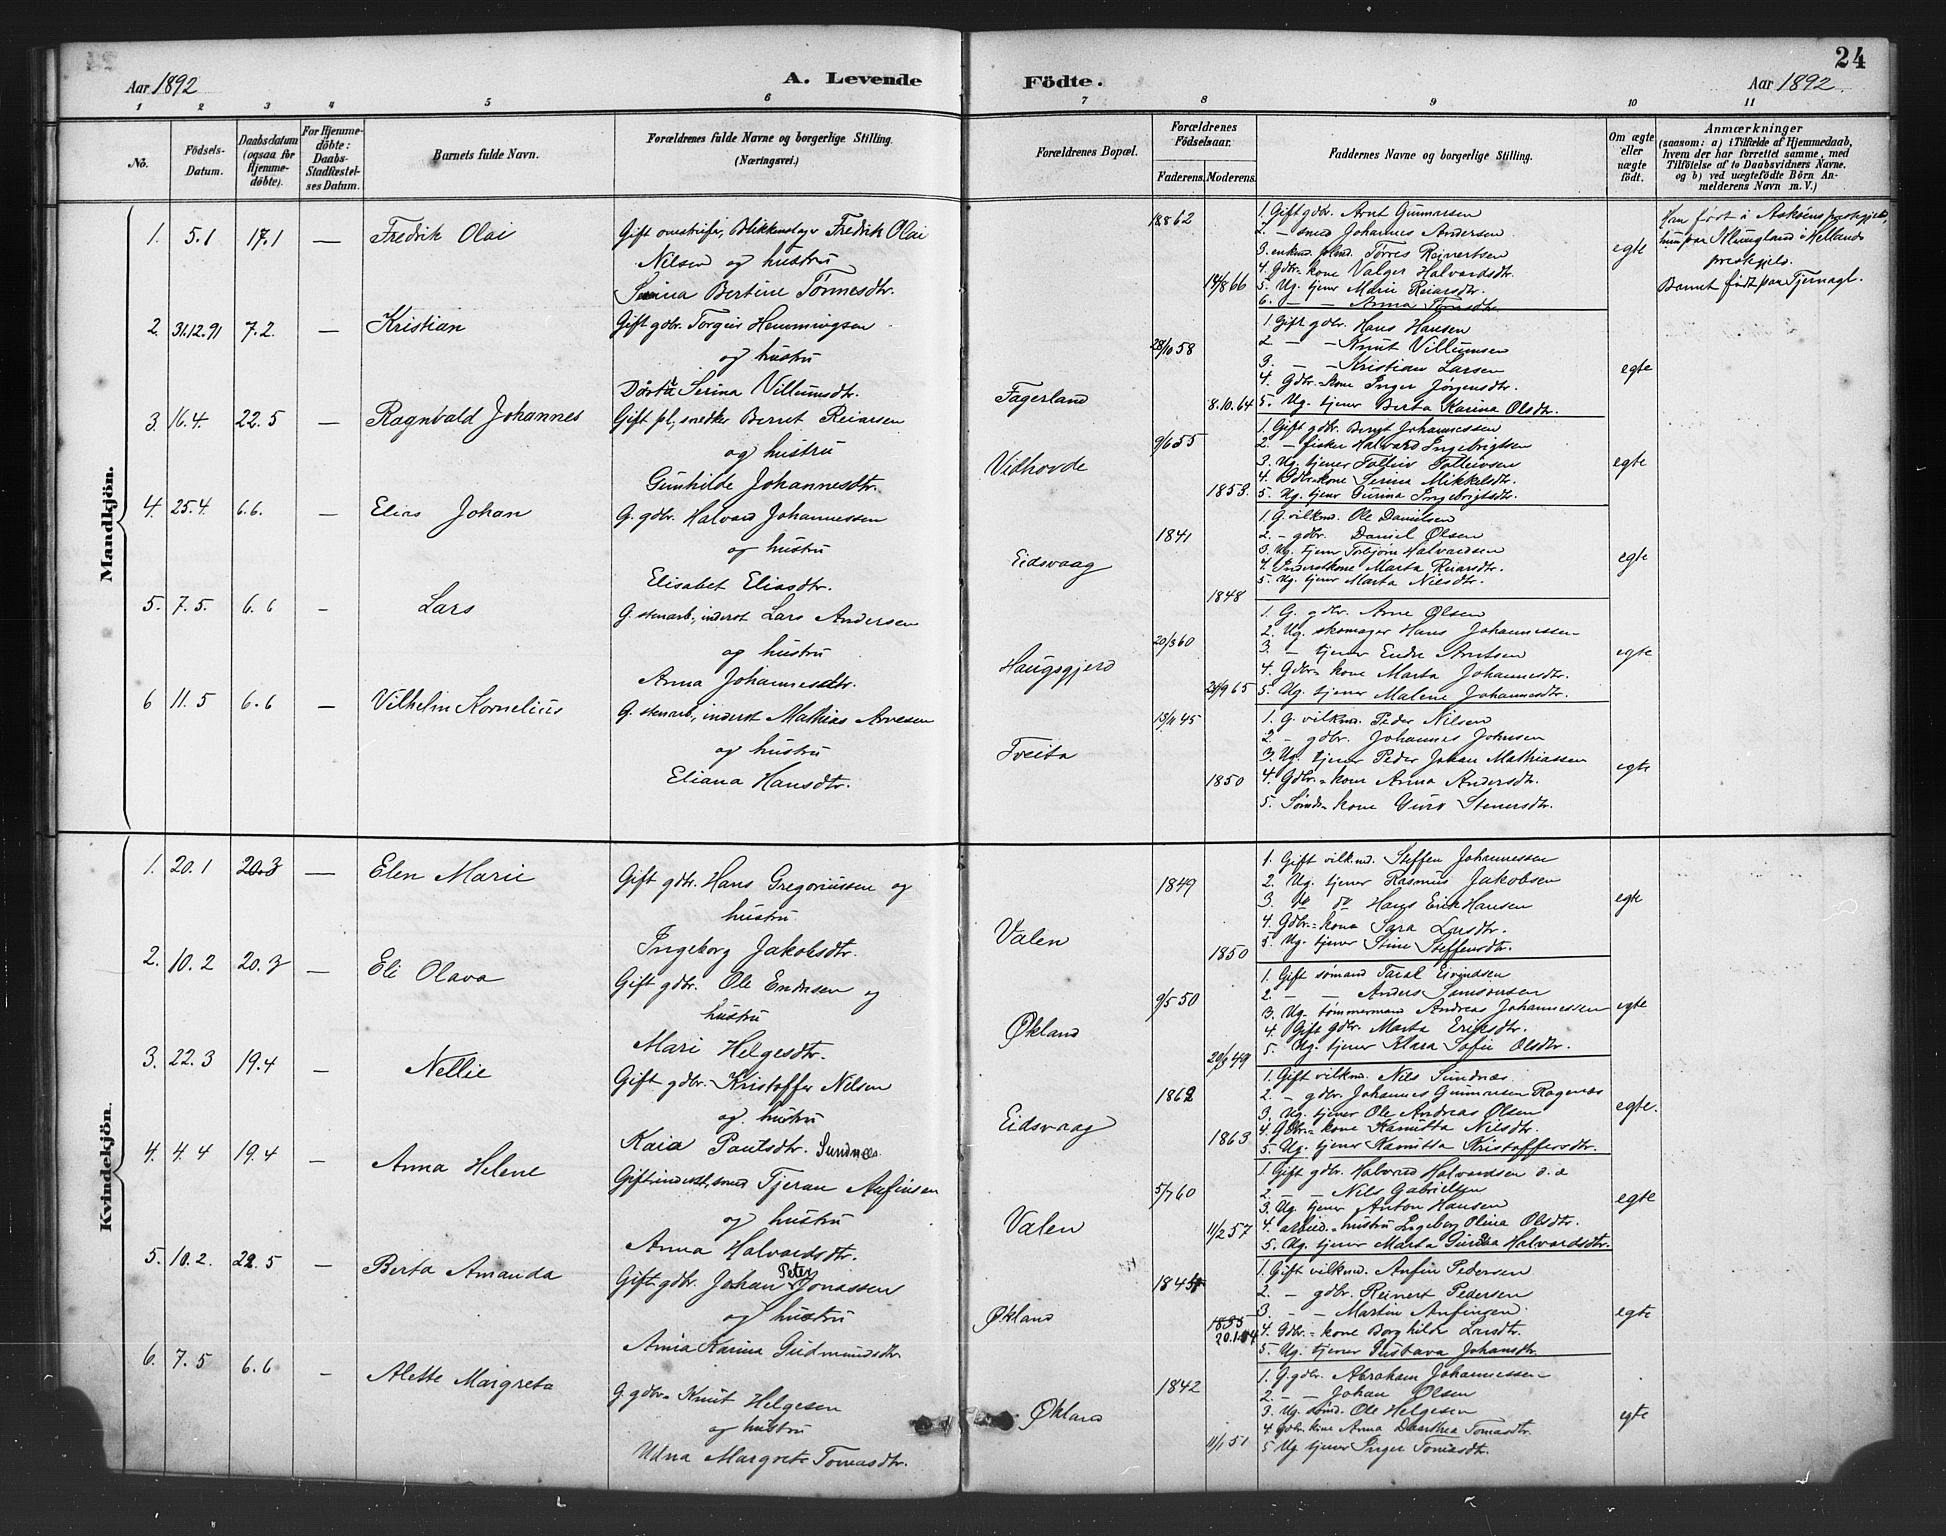 24
Aar 1892
A. Levende
Födte.
Aar 1892.
1 2 3 4 5 6 7 8 9 10 11
No.
Födsels-
Datum.
Daabsdatum
(ogsaa for
Hjemme-
döbte).
For Hjemme-
döbte:
Daabs-
Stadfæstel-
ses Datum.
Barnets fulde Navn.
Forældrenes fulde Navne og borgerlige Stilling.
(Næringsvei.)
Forældrenes Bopæl.
Forældrenes
Födselsaar.
Faderens.
Moderens.
Faddernes Navne og borgerlige Stilling.
Om ægte
eller
uægte
födt.
Anmærkninger
(saasom: a) i Tilfælde af Hjemmedaab,
hvem der har forrettet samme, med
Tilföielse af to Daabsvidners Navne.
og b) ved uægtefödte Börn An-
melderens Navn m. V.)
Mandkjön.
1. 5.1 17.1 — Fredrik Olai
Gift omstreifer, Blikkenslager Fredrik Olai
Nilsen og hustru
Serina Bertine Tønnesdtr.
1862
14/8 66
1. Gift gdbr. Arnt Gunnarsen
2. — smed Johannes Andersen
3. enkmd. Torres Reinertsen
4. Gdbr.-kone Valger Halvardsdtr.
5. Ug. tjener Marie Reiarsdtr.
6. — — Anna Tomasdtr.
egte
Han født i Askøens prestegjeld,
hun paa Alvaugland i Hellands
prestegjeld.
Barnet født paa Tjernagl.
2. 31.12.91 7.2. — Kristian
Gift gdbr. Torgeir Hemmingsen
og hustru
Dårtea Serina Villumsdtr.
Fagerland
28/10 58
8.10.64
1. Gift gdbr. Hans Hansen
2. — — Knut Villumsen
3. — — Kristian Larsen
4. Gdbr.-kone Inger Jørgensdtr.
5. Ug. tjener Berta Karina Olsdtr.
egte
3. 16.4. 22.5 — Ragnvald Johannes
Gift pl., snedker Bernt Reiarsen
og hustru
Gunhilde Johannesdtr.
Vidhovde
9/6 55
1853.
1. Gift gdbr. Bernt Johannessen
2. — fisker Halvard Ingebrigtsen
3. Ug. tjener Tolleiv Tolleivsen
4. Gdbr.-kone Serina Mikkelsdtr.
5. Ug. tjener Gurina Ingebrigtsdtr.
egte
4. 25.4. 6.6. — Elias Johan
G. gdbr. Halvard Johannessen
og hustru
Elisabet Eliasdtr.
Eidsvaag
1841
1848
1. G. vilkmd. Ole Danielsen
2. — gdbr. Daniel Olsen
3. Ug. tjener Torbjørn Halvardsen
4. Inderstkone Marta Reiarsdtr.
5. Ug. tjener Marta Nilsdtr.
egte
5. 7.5. 6.6 — Lars
G. stenarb., inderst Lars Andersen
og hustru
Anna Johannesdtr.
Haugsgjerd
20/3 60
24/9 65
1. G. gdbr. Arne Olsen
2. Ug. skomager Hans Johannessen
3. — tjener Endre Arntsen
4. Gdbr.-kone Marta Johannesdtr.
5. Ug. tjener Malene Johannesdtr.
egte
6 11.5 6.6 — Vilhelm Kornelius
G. stenarb., inderst Mathias Arnesen
og hustru
Eliana Hansdtr.
Tveita
13/11 45
1850
1. G. vilkmd. Peder Nilsen
2. — gdbr. Johannes Johnsen
3. Ug. tjener Peder Johan Mathiassen
4. Gdbr.-kone Anna Andersdtr.
5. Sømds-kone Guro Stenersdtr.
egte
Kvindekjön.
1. 20.1 20.3 — Elen Marie
Gift gdbr. Hans Gregoriussen og
hustru
Ingeborg Jakobsdtr.
Valen
1849
1850
1. Gift vilkmd. Steffen Johannessen
2. Ug. tjener Rasmus Jakobsen
3. do do Hans Erik Hansen
4. Gdbr.-kone Sara Larsdtr.
5. Ug. tjener Stine Steffensdtr.
egte
2. 10.2 20.3 — Eli Olava
Gift gdbr. Ole Endresen og
hustru
Mari Helgesdtr.
Økland
9/5 50
20/9 49
1. Gift sømand Taral Eivindsen
2. — — Anders Simonsen
3. Ug. tømmermand Andreas Johannessen
4. Gift gdbr. Marta Eriksdtr.
5. Ug. tjener Klara Sofie Olsdtr.
egte
3. 22.3 19.4 — Nellie
Gift gdbr. Kristoffer Nilsen
og hustru
Kaia Paulsdtr. Sundnes.
Eidsvaag
1862
1863
1. Gift vilkmd. Nils Sundnæs
2. — gdbr. Johannes Gunnarsen Ragenæs
3. Ug. tjener Ole Andreas Olsen
4. Gdbr.-kone Kanutta Nilsdtr.
5. Ug. tjener Kanutta Kristoffersdtr.
egte.
4. 4.4 19.4 — Anna Helene
Gift inderst, smed Tjeran Anfinsen
og hustru
Anna Halvardsdtr.
Valen
5/7 60
11/2 57
1. Gift gdbr. Halvard Halvardsen d. æ
2. — — Nils Gabrielsen
3. Ug. tjener Anton Hansen
4. arbeid.-hustru Ingeborg Olina Olsdtr.
5. Ug. tjener Marta Halvardsdtr.
egte
5. 10.2. 22.5 — Berta Amanda
Gift gdbr. Johan Peter Jonassen
og hustru
Anna Karina Gudmundsdtr.
Økland
1845
1855
20.1.54
1. Gift vilkmd. Anfin Pedersen
2. — gdbr. Reinert Pedersen
3. — — Martin Anfinsen
4. Gdbr.-kone Borghilde Larsdtr.
5. Ug. tjener Gustava Johansdtr.
egte
6. 7.5 6.6 — Alette Margreta
G. gdbr. Knut Helgesen
og hustru
Udna Margrete Tomasdtr.
Økland
1842
11/1 51
1. G. gdbr. Abraham Johannessen
2. — — Johan Olsen
3. Ug. sømd. Ole Helgesen
4. Gdbr.kone Anna Dorthea Tomasdtr.
5. Ug. tjener Inger Tomasdtr.
egte